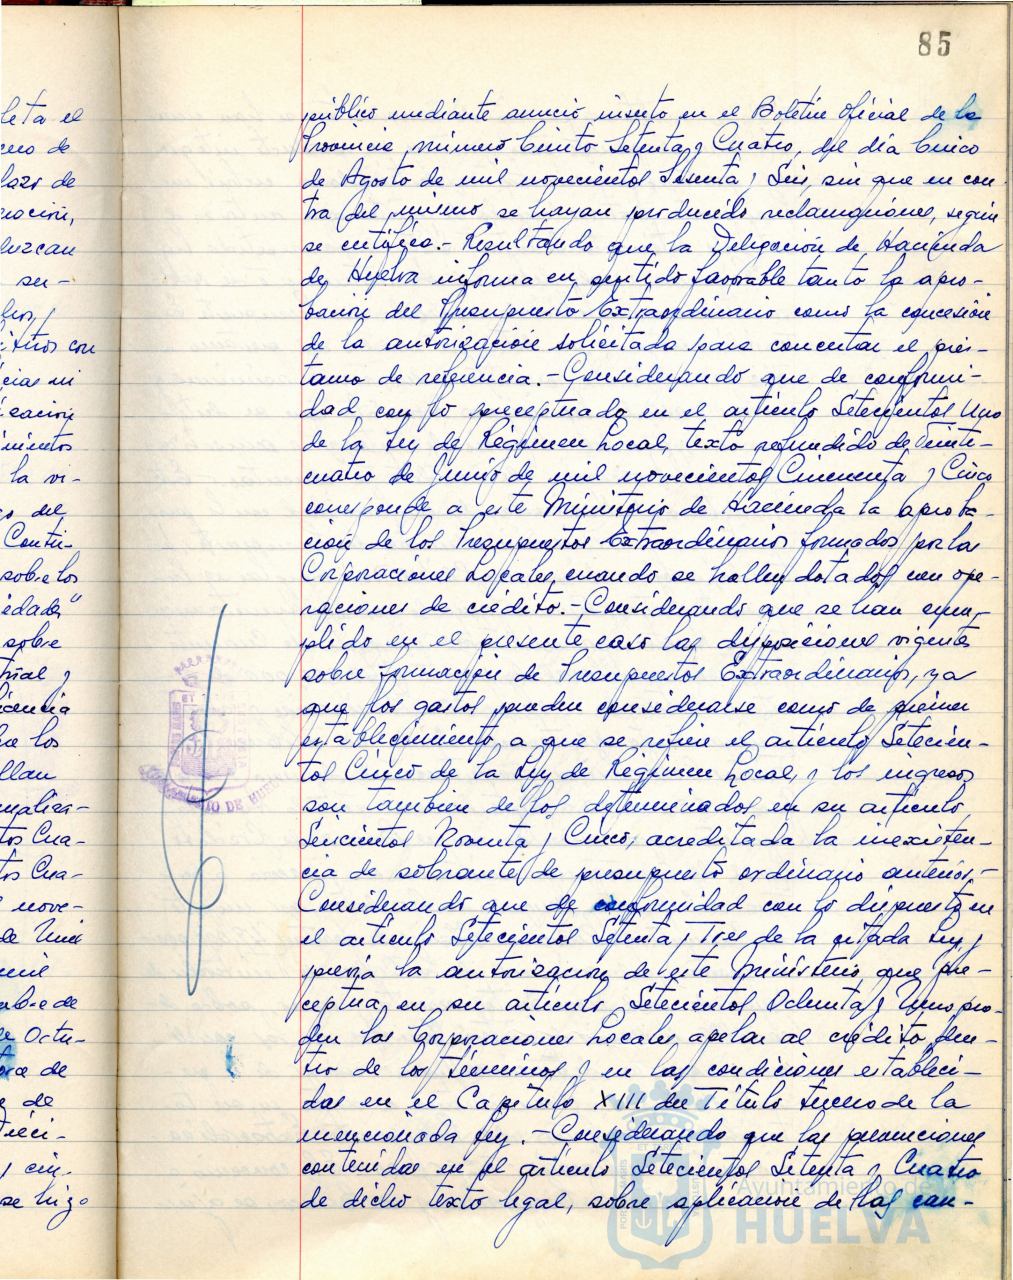 85
público mediante anuncio inserto en el Boletín Oficial de la
Provincia, número Ciento Setenta y Cuatro, del día Cinco
de Agosto de mil novecientos Sesenta y Seis, sin que en con-
tra del mismo se hayan producido reclamaciones, según
se certifica.- Resultando que la Delegación de Hacienda
de Huelva informa en sentido favorable tanto la apro-
bación del Presupuesto Extraordinario como la concesión
de la autorización solicitada para concertar el prés-
tamo de referencia.- Considerando que de conformi-
dad con lo preceptuado en el artículo Setecientos Uno
de la Ley de Régimen Local, texto refundido de Veinti-
cuatro de Junio de mil novecientos Cincuenta y Cinco
corresponde a este Ministerio de Hacienda la aproba-
ción de los Presupuestos Extraordinarios formados por las
Corporaciones Locales, cuando se hallen dotados con ope-
raciones de crédito.- Considerando que se han cum-
plido en el presente caso las disposiciones vigentes
sobre formación de Presupuestos Extraordinarios, ya
que los gastos pueden considerarse como de primer
establecimiento a que se refiere el artículo Setecien-
tos Cinco de la Ley de Régimen Local, y los ingresos
son también de los determinados en su artículo
Seiscientos Noventa y Cinco, acreditada la inexisten-
cia de sobrante de presupuesto ordinario anterior.-
Considerando que de conformidad con lo dispuesto en
el artículo Setecientos Setenta y Tres de la citada Ley, y
previa la autorización de este Ministerio que pre-
ceptua en su artículo Setecientos Ochenta y Uno pue-
den las Corporaciones Locales, apelar al crédito den-
tro de los términos y en las condiciones estableci-
das en el Capítulo XIII del Título tercero de la
mencionada Ley.- Considerando que las prevenciones
contenidas en el artículo Setecientos Setenta y Cuatro
de dicho texto legal, sobre aplicación de las can-
Ayuntamiento de
HUELVA